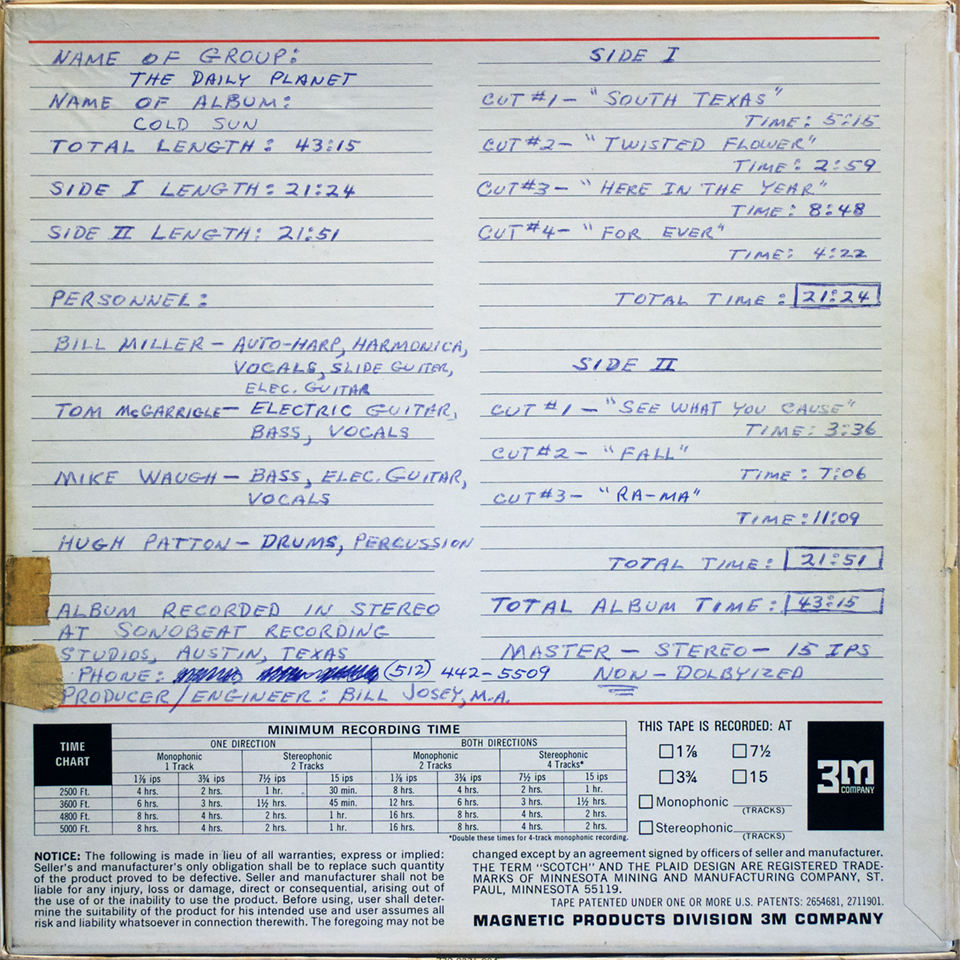 NAME OF GROUP:
THE DAILY PLANET
NAME OF ALBUM:
COLD SUN
TOTAL LENGTH: 43:15
SIDE I LENGTH: 21:24
SIDE II LENGTH: 21:51
PERSONNEL:
BILL MILLER – AUTO-HARP, HARMONICA,
VOCALS, SLIDE GUITER,
ELEC. GUITAR
TOM McGARRIGLE – ELECTRIC GUITAR,
BASS, VOCALS
MIKE WAUGH – BASS, ELEC. GUITAR,
VOCALS
HUGH PATTON – DRUMS, PERCUSSION
ALBUM RECORDED IN STEREO
AT SONOBEAT RECORDING
STUDIOS, AUSTIN, TEXAS
PHONE: (512) 442-5509
PRODUCER/ENGINEER: BILL JOSEY, M.A.
SIDE I
CUT #1 – "SOUTH TEXAS"
TIME: 5:15
CUT #2 – "TWISTED FLOWER"
TIME: 2:59
CUT #3 – "HERE IN THE YEAR"
TIME: 8:48
CUT #4 – "FOR EVER"
TIME: 4:22
TOTAL TIME: 21:24
SIDE II
CUT #1 – "SEE WHAT YOU CAUSE"
TIME: 3:36
CUT #2 – "FALL"
TIME: 7:06
CUT #3 – "RA-MA"
TIME: 11:09
TOTAL TIME: 21:51
TOTAL ALBUM TIME: 43:15
MASTER – STEREO – 15 IPS
NON – DOLBYIZED
TIME
CHART
MINIMUM RECORDING TIME
ONE DIRECTION BOTH DIRECTIONS
Monophonic Stereophonic Monophonic Stereophonic
1 Track 2 Tracks 2 Tracks 4 Tracks*
1⅞ ips 3¾ ips 7½ ips 15 ips 1⅞ ips 3¾ ips 7½ ips 15 ips
2500 Ft. 4 hrs. 2 hrs. 1 hr. 30 min. 8 hrs. 4 hrs. 2 hrs. 1 hr.
3600 Ft. 6 hrs. 3 hrs. 1½ hrs. 45 min. 12 hrs. 6 hrs. 3 hrs. 1½ hrs.
4800 Ft. 8 hrs. 4 hrs. 2 hrs. 1 hr. 16 hrs. 8 hrs. 4 hrs. 2 hrs.
5000 Ft. 8 hrs. 4 hrs. 2 hrs. 1 hr. 16 hrs. 8 hrs. 4 hrs. 2 hrs.
*Double these times for 4-track monophonic recording.
THIS TAPE IS RECORDED: AT
1⅞ 7½
3¾ 15
Monophonic
(TRACKS)
Stereophonic
(TRACKS)
3M
COMPANY
NOTICE: The following is made in lieu of all warranties, express or implied:
Seller's and manufacturer's only obligation shall be to replace such quantity
of the product proved to be defective. Seller and manufacturer shall not be
liable for any injury, loss or damage, direct or consequential, arising out of
the use of or the inability to use the product. Before using, user shall deter-
mine the suitability of the product for his intended use and user assumes all
risk and liability whatsoever in connection therewith. The foregoing may not be
changed except by an agreement signed by officers of seller and manufacturer.
THE TERM "SCOTCH" AND THE PLAID DESIGN ARE REGISTERED TRADE-
MARKS OF MINNESOTA MINING AND MANUFACTURING COMPANY, ST.
PAUL, MINNESOTA 55119.
TAPE PATENTED UNDER ONE OR MORE U.S. PATENTS: 2654681, 2711901.
MAGNETIC PRODUCTS DIVISION 3M COMPANY